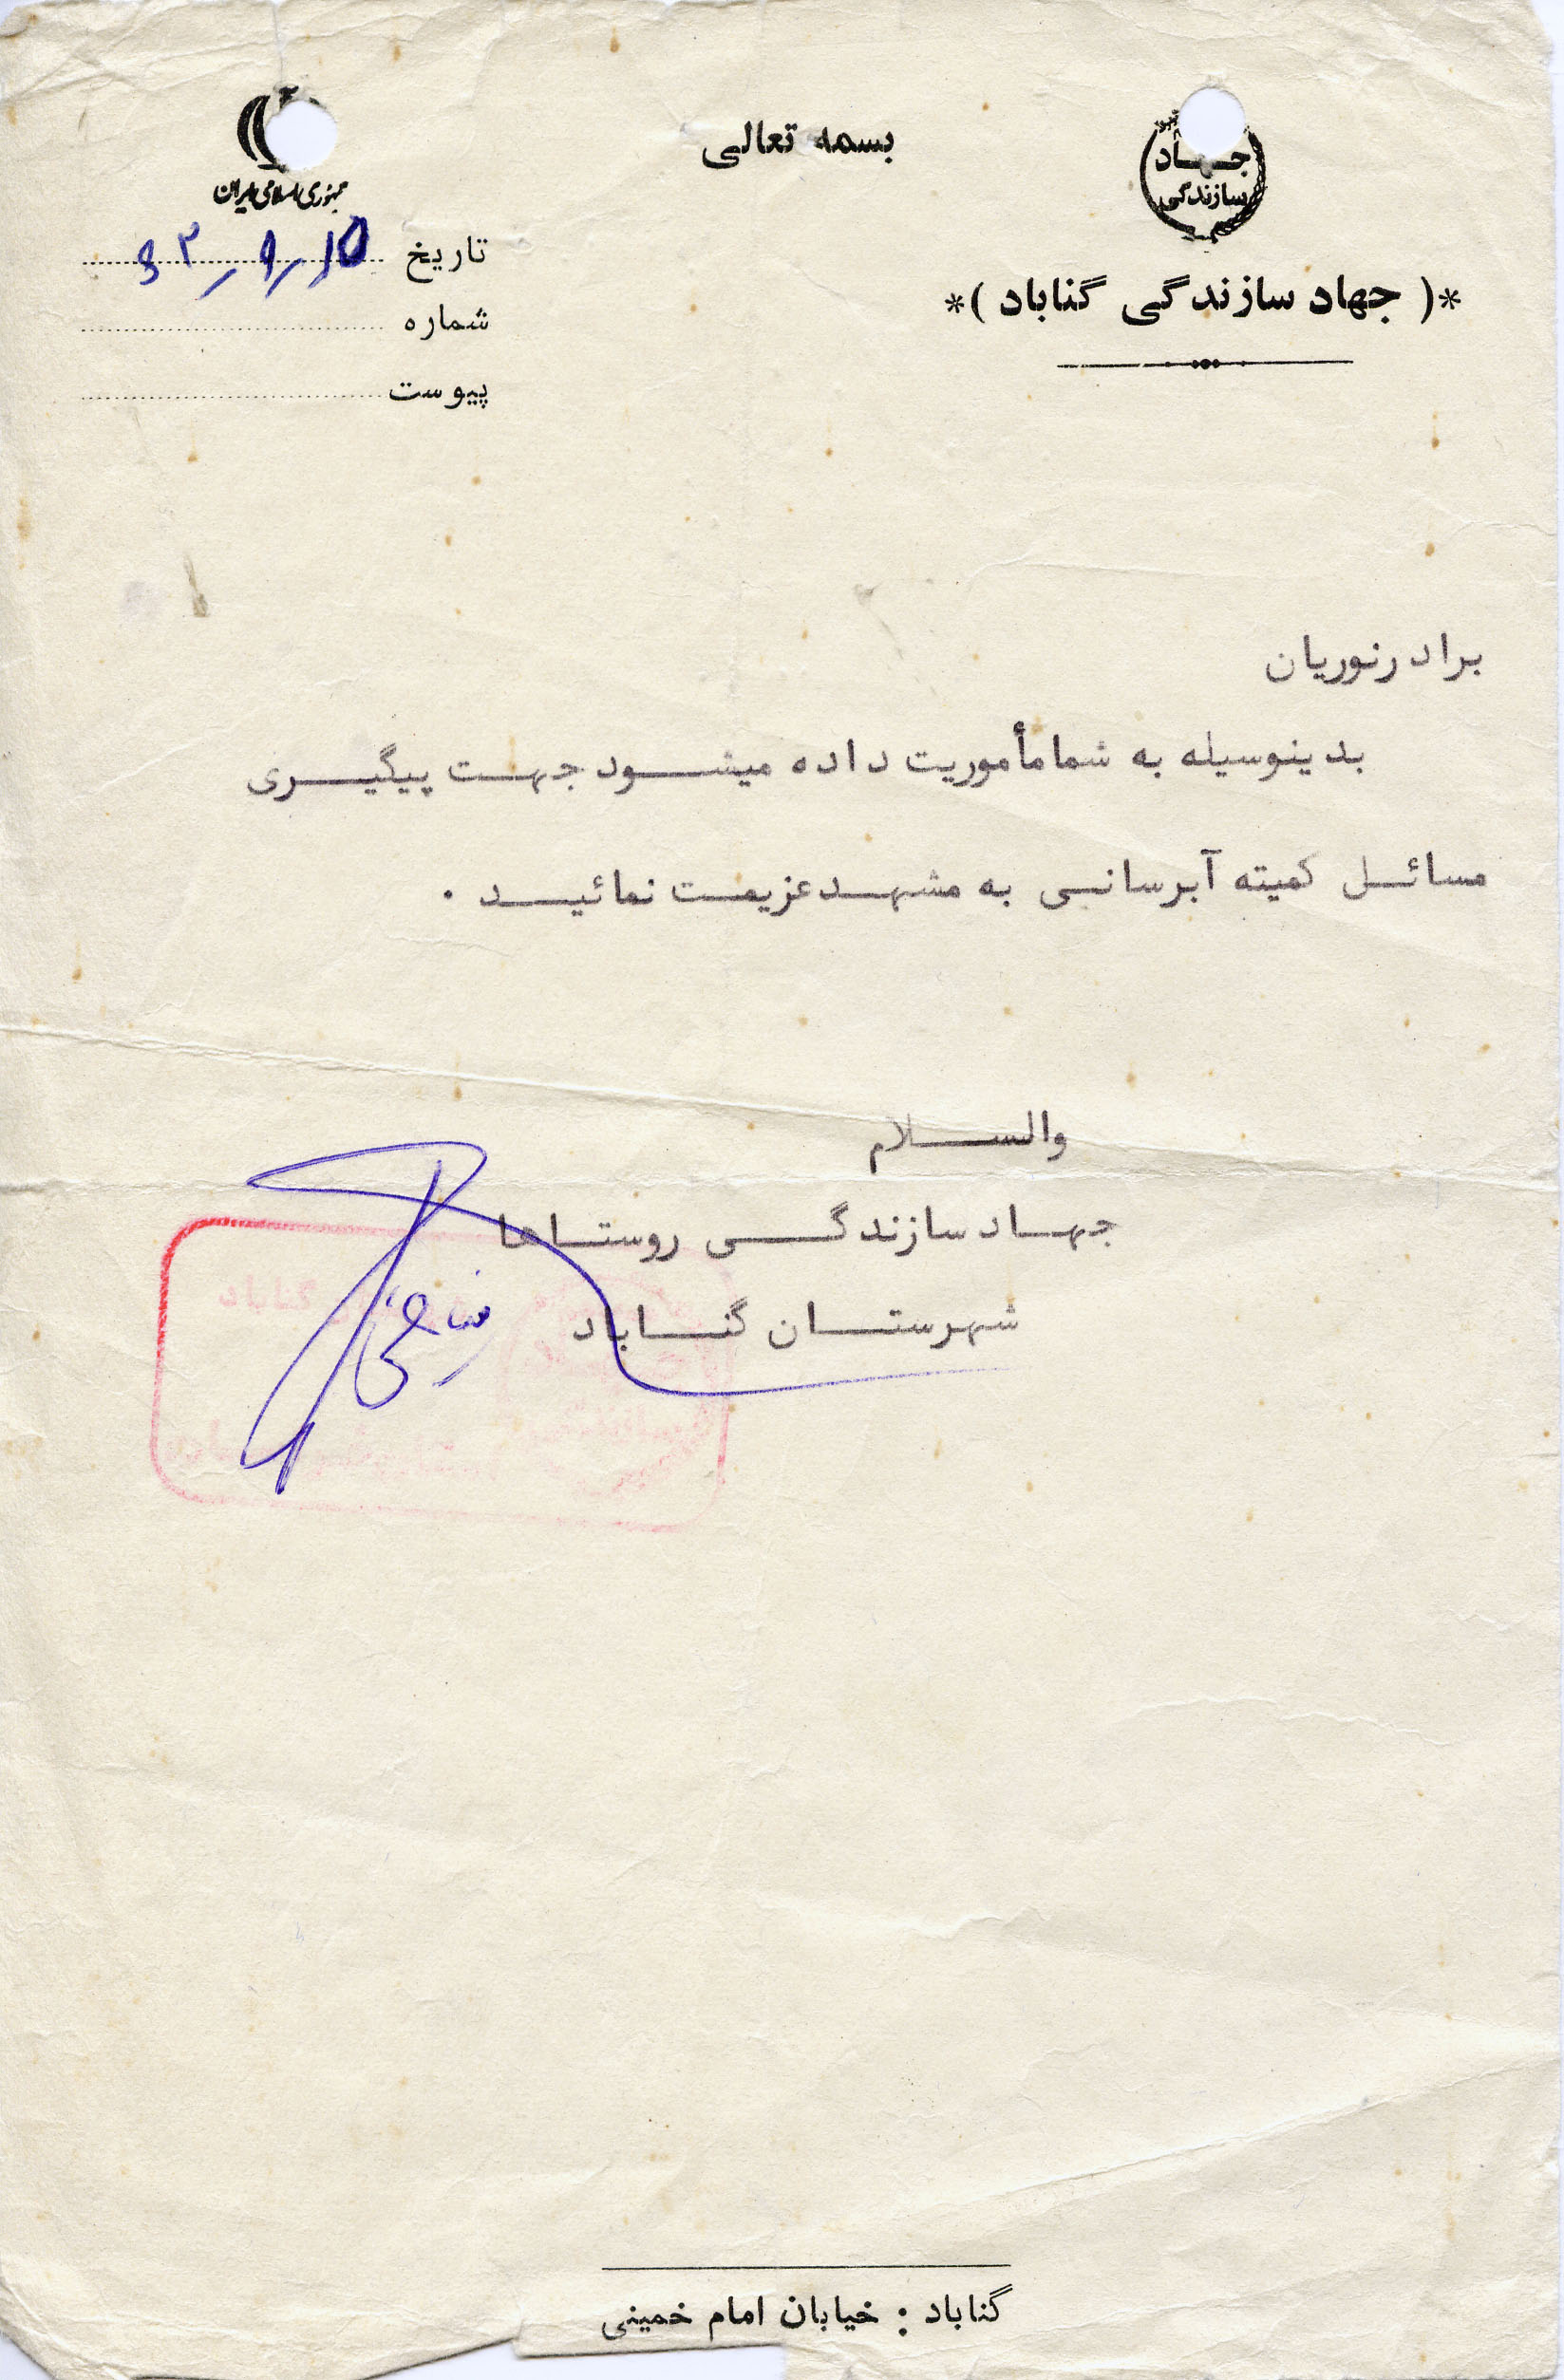 بسمه تعالی
جهاد
سازندگی
*( جهاد سازندگی گناباد )*
جمهوری اسلامی ایران
تاریخ
شماره
پیوست
برادرنوریان
بدینوسیله به شما مأموریت داده میشود جهت پیگیری
مسائل کمیته آبرسانی به مشهد عزیمت نمائید .
والسلام
جهاد سازندگی روستاها
شهرستان گناباد
گناباد
گناباد : خیابان امام خمینی